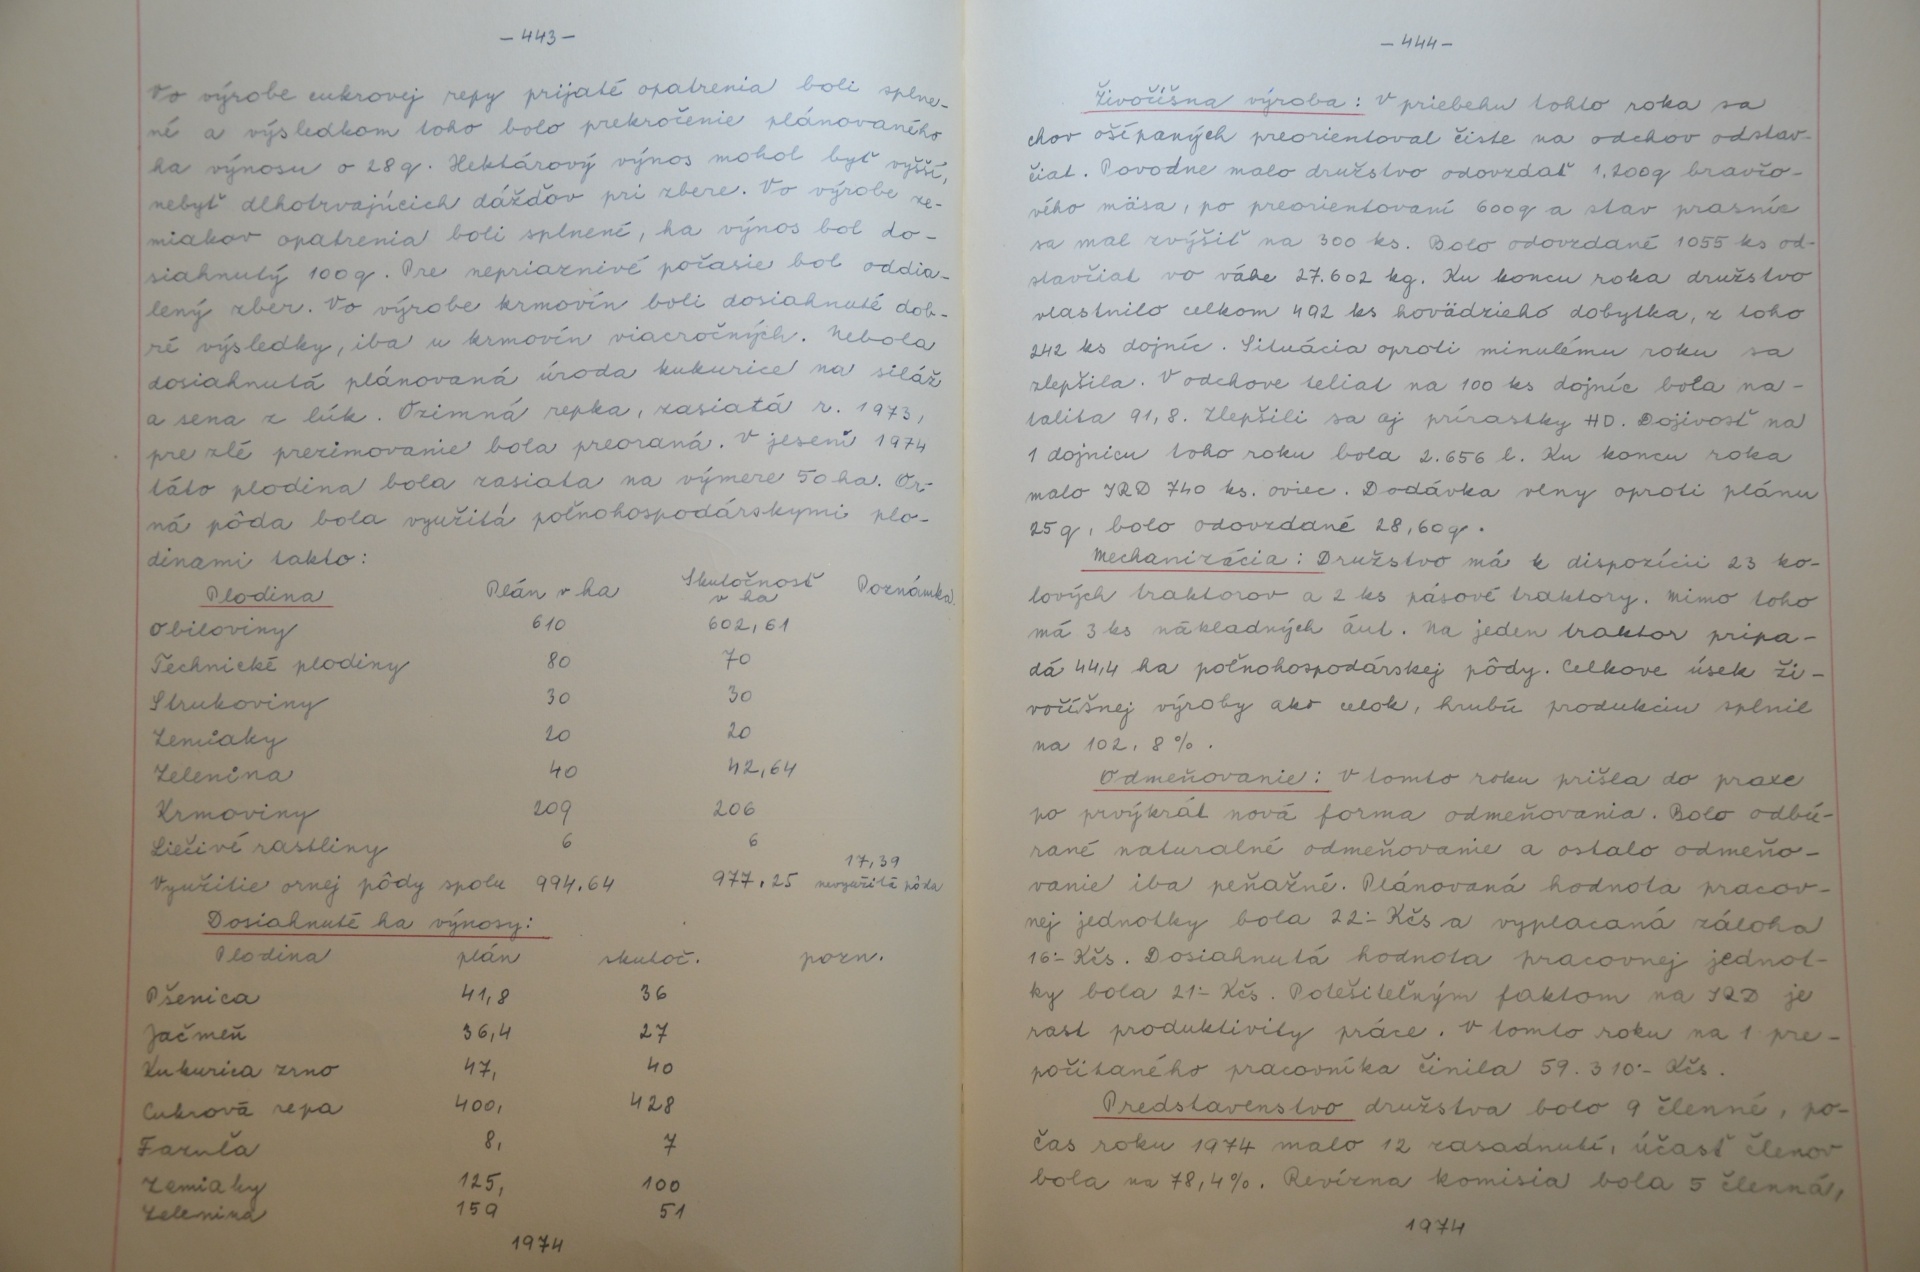 - 443 -
Vo výrobe cukrovej repy prijaté opatrenia boli splne-
né a výsledkom toho bolo prekročenie plánovaného
ha výnosu o 28 q. Hektárový výnos mohol byť vyšší,
nebyť dlhotrvajúcich dážďov pri zbere. Vo výrobe ze-
miakov opatrenia boli splnené, ha výnos bol do-
siahnutý 100 q. Pre nepriaznivé počasie bol oddia-
lený zber. Vo výrobe krmovín boli dosiahnuté dob-
ré výsledky, iba u krmovín viacročných. Nebola
dosiahnutá plánovaná úroda kukurice na siláž
a sena z lúk. Ozimná repka, zasiatá r. 1973,
pre zlé prezimovanie bola preoraná. V jeseni 1974
táto plodina bola zasiata na výmere 50 ha. Or-
ná pôda bola využitá poľnohospodárskymi plo-
dinami takto:
Plodina Plán v ha Skutočnosť v ha Poznámka
Obiloviny 610 602,61
Technické plodiny 80 70
Strukoviny 30 30
Zemiaky 20 20
Zelenina 40 42,64
Krmoviny 209 206
Liečivé rastliny 6 6
Využitie ornej pôdy spolu 994.64 977.25 17,39 nevyužitá pôda
Dosiahnuté ha výnosy:
Plodina plán skutoč. pozn.
Pšenica 41,8 36
Jačmeň 36,4 27
Kukurica zrno 47, 40
Cukrová repa 400, 428
Fazuľa 8, 7
Zemiaky 125, 100
Zelenina 159 51
1974
- 444 -
Živočíšna výroba: V priebehu tohto roka sa
chov ošípaných preorientoval čiste na odchov odstav-
čiat. Povodne malo družstvo odovzdať 1.200 q bravčo-
vého mäsa, po preorientovaní 600 q a stav prasníc
sa mal zvýšiť na 300 ks. Bolo odovzdané 1055 ks od-
stavčiat vo váhe 27.602 kg. Ku koncu roka družstvo
vlastnilo celkom 492 ks hovädzieho dobytka, z toho
242 ks dojníc. Situácia oproti minulému roku sa
zlepšila. V odchove teliat na 100 ks dojníc bola na-
talita 91,8. Zlepšili sa aj prírastky HD. Dojivosť na
1 dojnicu toho roku bola 2.656 l. Ku koncu roka
malo JRD 740 ks. oviec. Dodávka vlny oproti plánu
25 q, bolo odovzdané 28,60 q.
Mechanizácia: Družstvo má k dispozícii 23 ko-
lových traktorov a 2 ks pásové traktory. Mimo toho
má 3 ks nákladných áut. Na jeden traktor pripa-
dá 44,4 ha poľnohospodárskej pôdy. Celkove úsek ži-
vočíšnej výroby ako celok, hrubú produkciu splnil
na 102,8 %.
Odmeňovanie: V tomto roku prišla do praxe
po prvýkrát nová forma odmeňovania. Bolo odbú-
rané naturalné odmeňovanie a ostalo odmeňo-
vanie iba peňažné. Plánovaná hodnota pracov-
nej jednotky bola 22:- Kčs a vyplacaná záloha
16:- Kčs. Dosiahnutá hodnota pracovnej jednot-
ky bola 21:- Kčs. Potešiteľným faktom na JRD je
rast produktivity práce. V tomto roku na 1 pre-
počítaného pracovníka činila 59.310:- Kčs.
Predstavenstvo družstva bolo 9 členné, po-
čas roku 1974 malo 12 zasadnutí, účasť členov
bola na 78,4%. Revízna komisia bola 5 členná,
1974